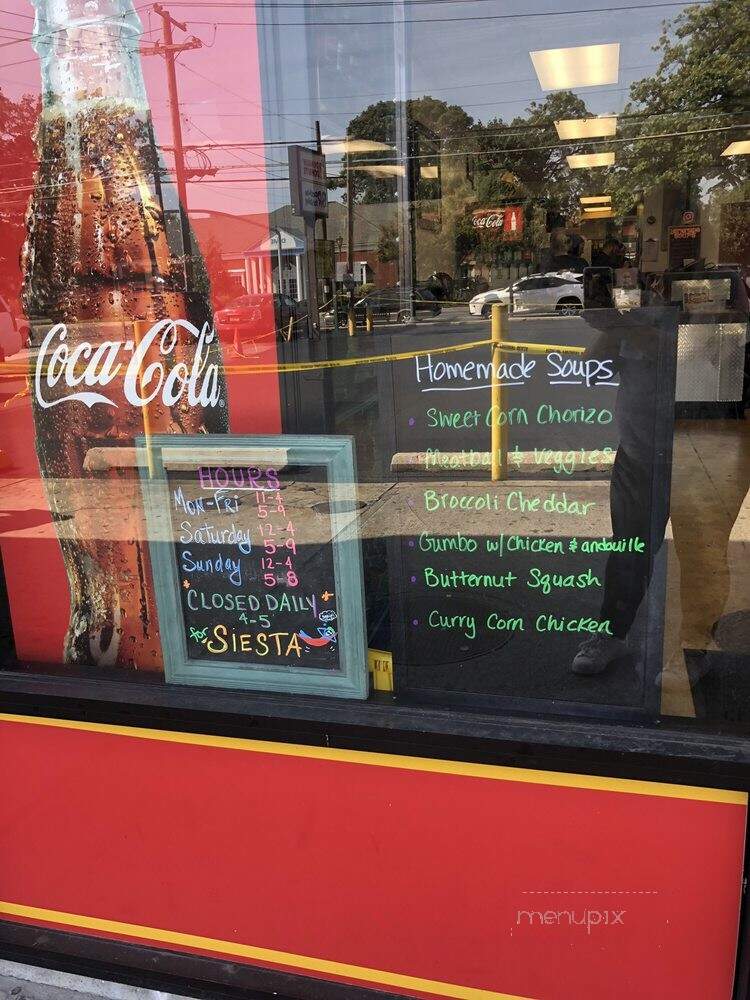 Coca-Cola
Coca-Cola
HOURS
MON-FRI 11-4
5-9
Saturday 12-4
5-9
Sunday 12-4
5-8
CLOSED DAILY
4-5
for SIESTA
Homemade Soups
• Sweet Corn Chorizo
• Meatball & Veggies
• Broccoli Cheddar
• Gumbo w/ Chicken & andouille
• Butternut Squash
• Curry Corn Chicken
menupix